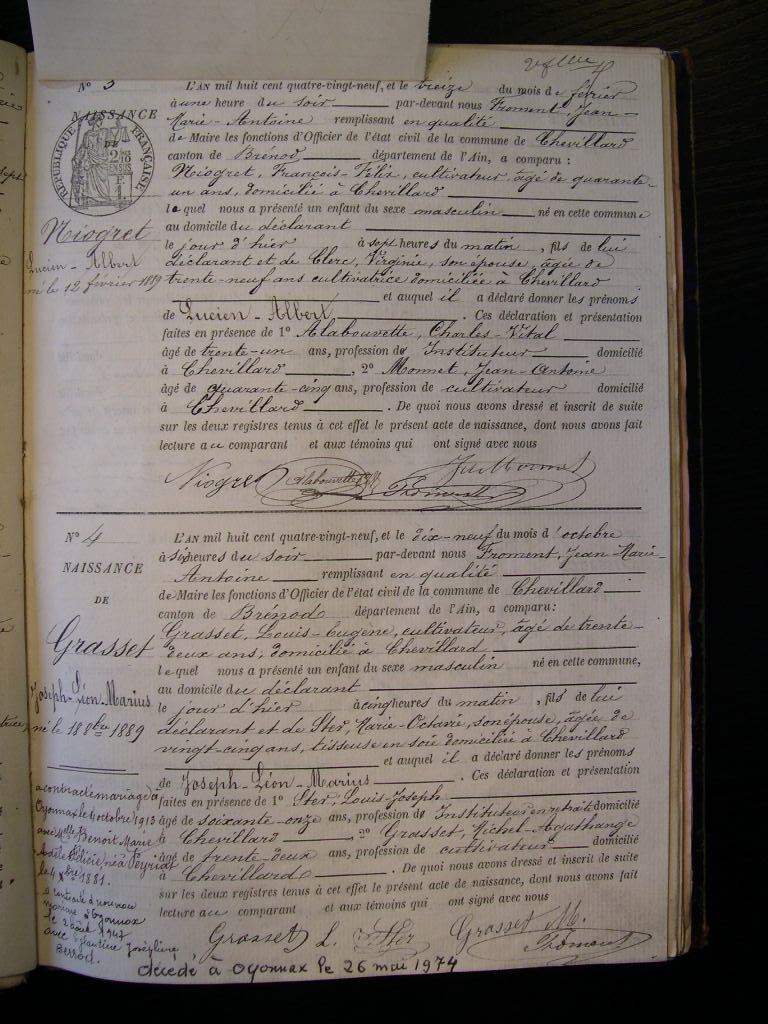 N° 3
NAISSANCE
DE
RÉPUBLIQUE FRANÇAISE
Niogret
Lucien-Albert
né le 12 février 1889
L'AN mil huit cent quatre-vingt-neuf, et le treize du mois de février
à une heure du soir par-devant nous Froment, Jean-
Marie-Antoine remplissant en qualité
de Maire les fonctions d'Officier de l'état civil de la commune de Chevillard
canton de Brénod département de l'Ain, a comparu :
Niogret, François-Félix, cultivateur, âgé de quarante-
un ans, domicilié à Chevillard
lequel nous a présenté un enfant du sexe masculin né en cette commune
au domicile du déclarant
le jour d'hier à sept heures du matin, fils de lui
déclarant et de Clerc, Virginie, son épouse, âgée de
trente-neuf ans cultivatrice domiciliée à Chevillard
et auquel il a déclaré donner les prénoms
de Lucien-Albert. Ces déclaration et présentation
faites en présence de 1° Alabouvette, Charles-Vital
âgé de trente-un ans, profession de Instituteur domicilié
à Chevillard, 2° Monnet, Jean-Antoine
âgé de quarante-cinq ans, profession de cultivateur domicilié
à Chevillard. De quoi nous avons dressé et inscrit de suite
sur les deux registres tenus à cet effet le présent acte de naissance, dont nous avons fait
lecture au comparant et aux témoins qui ont signé avec nous
Niogret Alabouvette Monnet
Froment
N° 4
NAISSANCE
DE
Grasset
Joseph-Léon-Marius
né le 18 8bre 1889
L'AN mil huit cent quatre-vingt-neuf, et le dix-neuf du mois d'octobre
à six heures du soir par-devant nous Froment, Jean-Marie-
Antoine remplissant en qualité
de Maire les fonctions d'Officier de l'état civil de la commune de Chevillard
canton de Brénod département de l'Ain, a comparu :
Grasset, Louis-Eugène, cultivateur, âgé de trente-
deux ans, domicilié à Chevillard
lequel nous a présenté un enfant du sexe masculin né en cette commune,
au domicile du déclarant
le jour d'hier à cinq heures du matin, fils de lui
déclarant et de Ster, Marie-Octavie, son épouse, âgée de
vingt-cinq ans, tisseuse en soie domiciliée à Chevillard
et auquel il a déclaré donner les prénoms
de Joseph-Léon-Marius. Ces déclaration et présentation
faites en présence de 1° Ster, Louis-Joseph
âgé de soixante-onze ans, profession de Instituteur en retraite domicilié
à Chevillard, 2° Grasset, Michel-Agathange
âgé de trente-deux ans, profession de cultivateur domicilié
à Chevillard. De quoi nous avons dressé et inscrit de suite
sur les deux registres tenus à cet effet le présent acte de naissance, dont nous avons fait
lecture au comparant et aux témoins qui ont signé avec nous
Grasset L. Ster Grasset M.
Froment
a contracté mariage à
Oyonnax le 4 octobre 1913
avec Mlle Benoit Marie
née à Peyriat
le 4 xbre 1881.
a contracté à nouveau
mariage à Oyonnax
le 2 août 1947
avec Joséphine
Berrod.
décédé à Oyonnax le 26 mai 1974